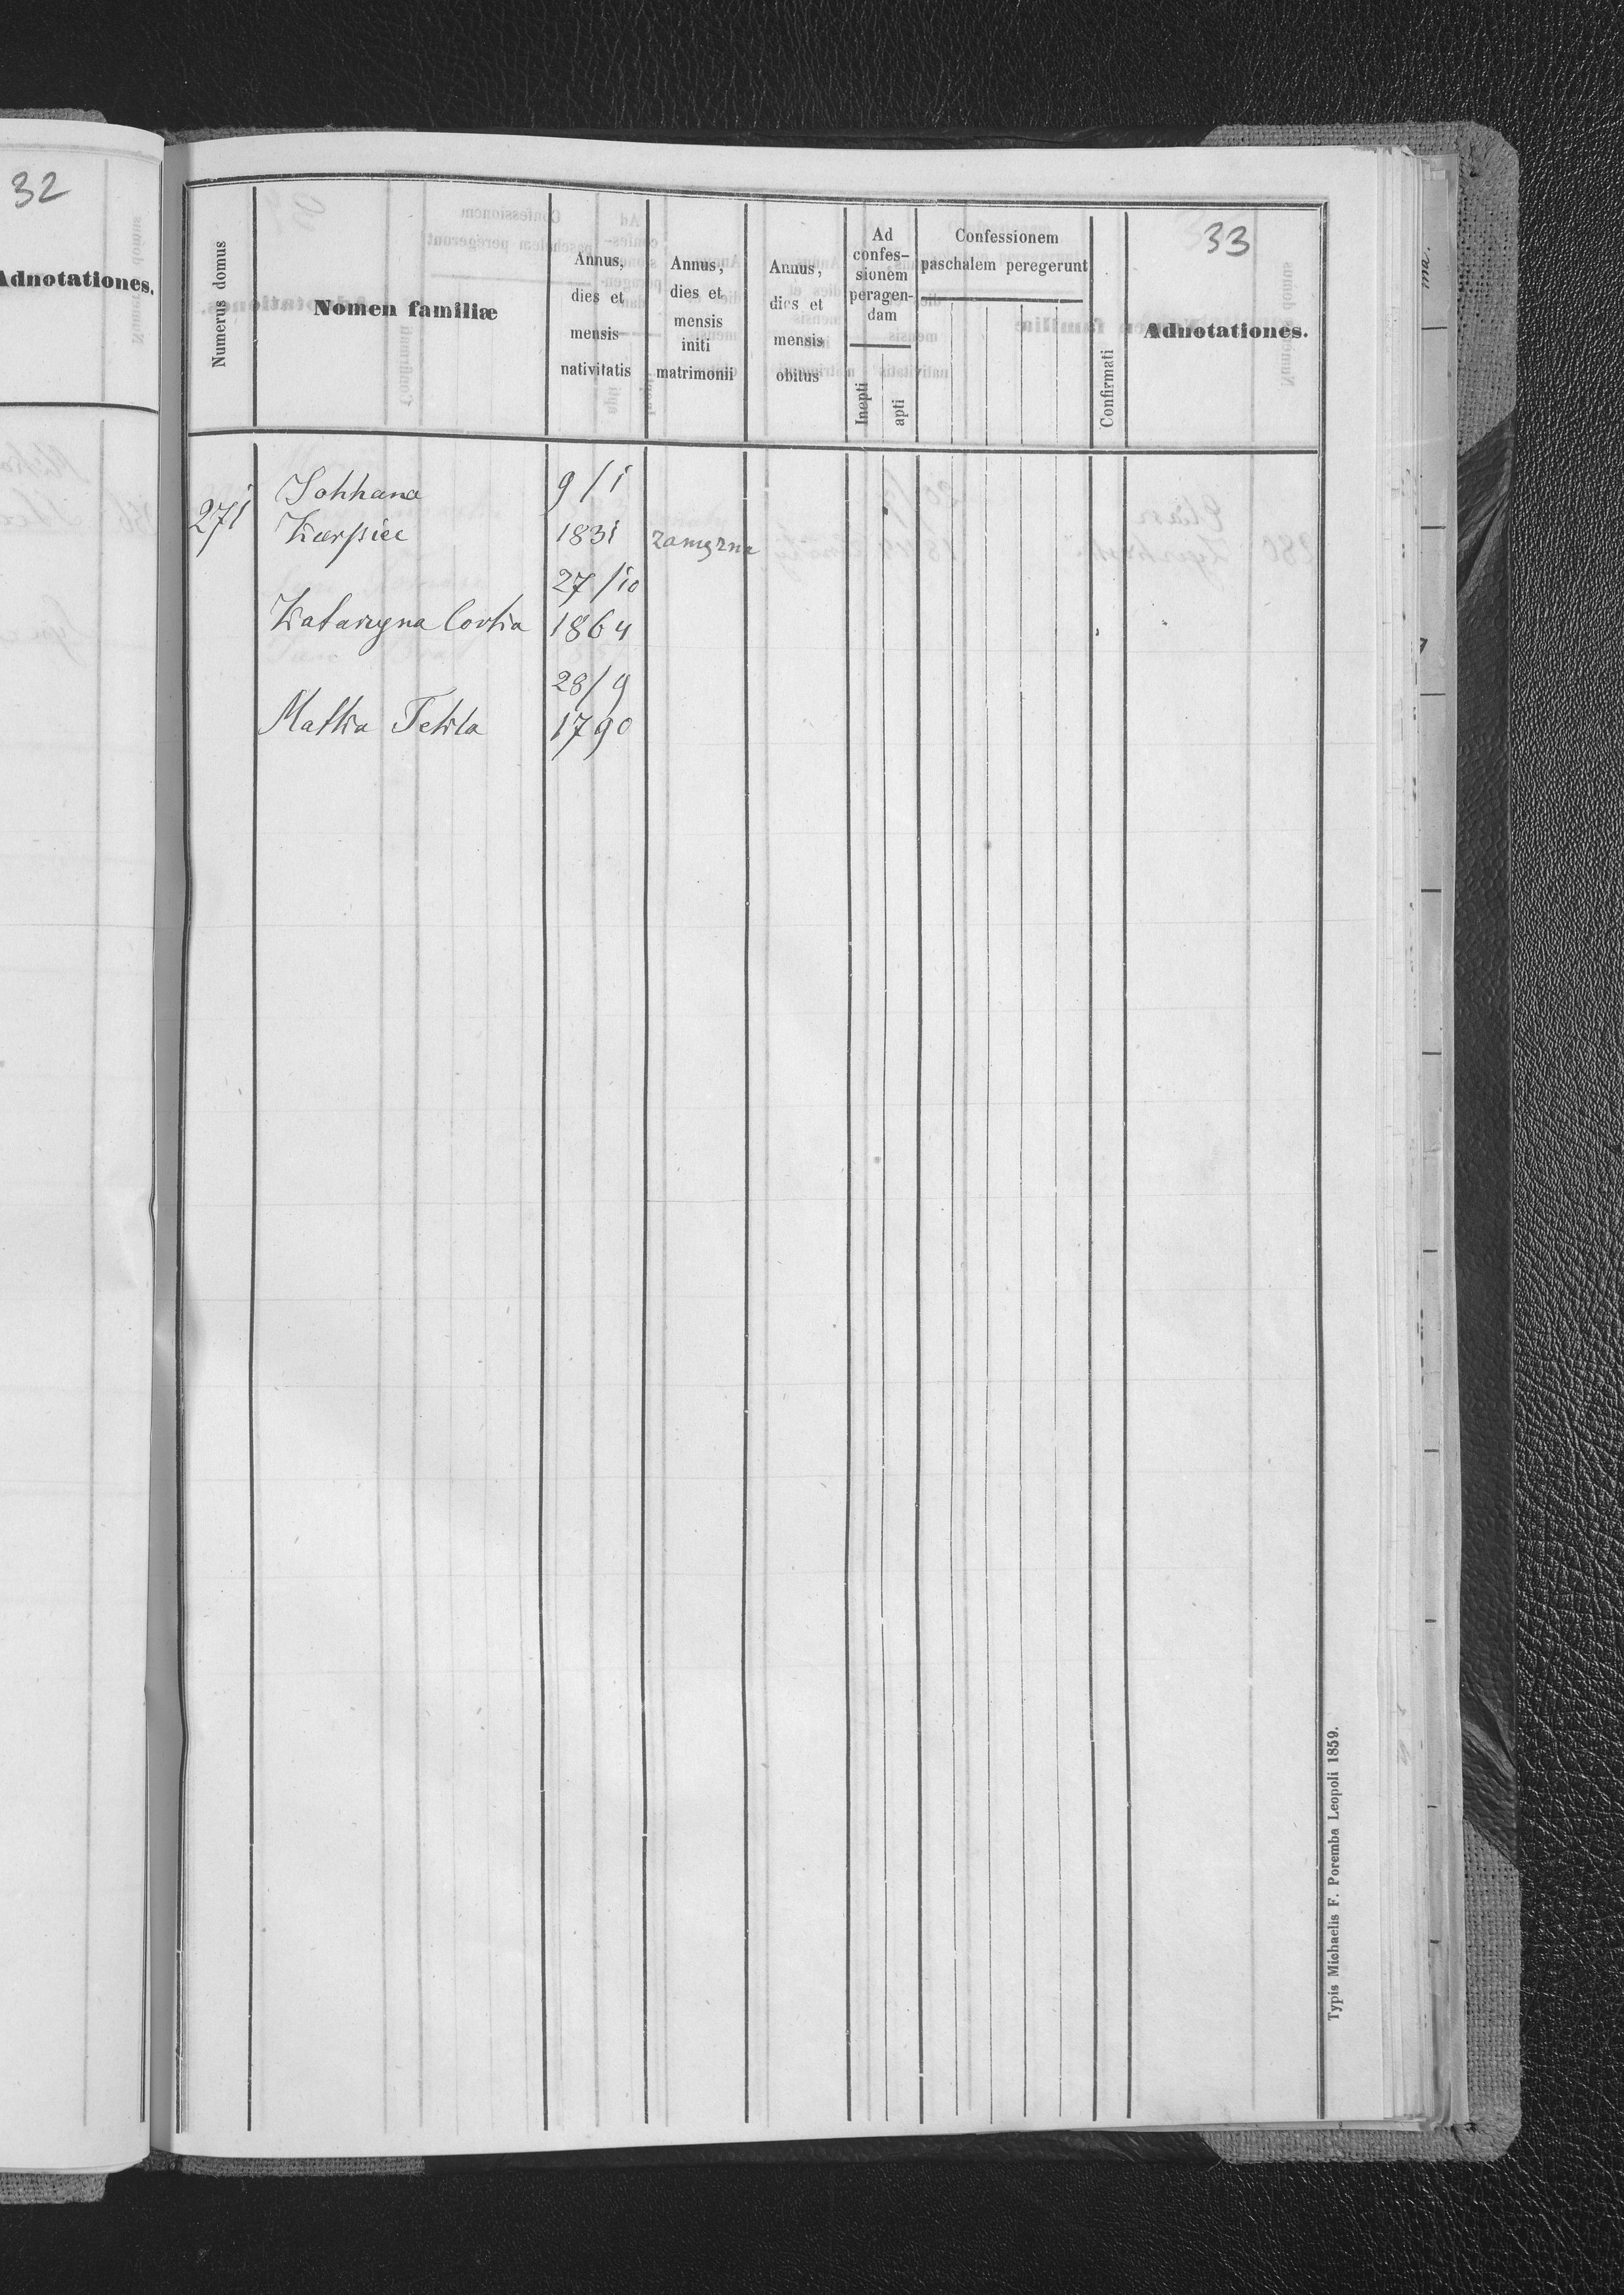 32
Adnotationes.
33
Numerus domus
Nomen familiæ
Annus,
dies et
mensis
nativitatis
Annus,
dies et
mensis
initi
matrimonii
Annus,
dies et
mensis
obitus
Ad
confes-
sionem
peragen-
dam
Inepti
apti
Confessionem
paschalem peregerunt
Confirmati
Adnotationes.
Johhana 9/1
271 Karpiec 1831 zamęzna
27/10
Katarzyna Corka 1864
28/9
Matka Tekla 1790
Typis Michaelis F. Poremba Leopoli 1859.